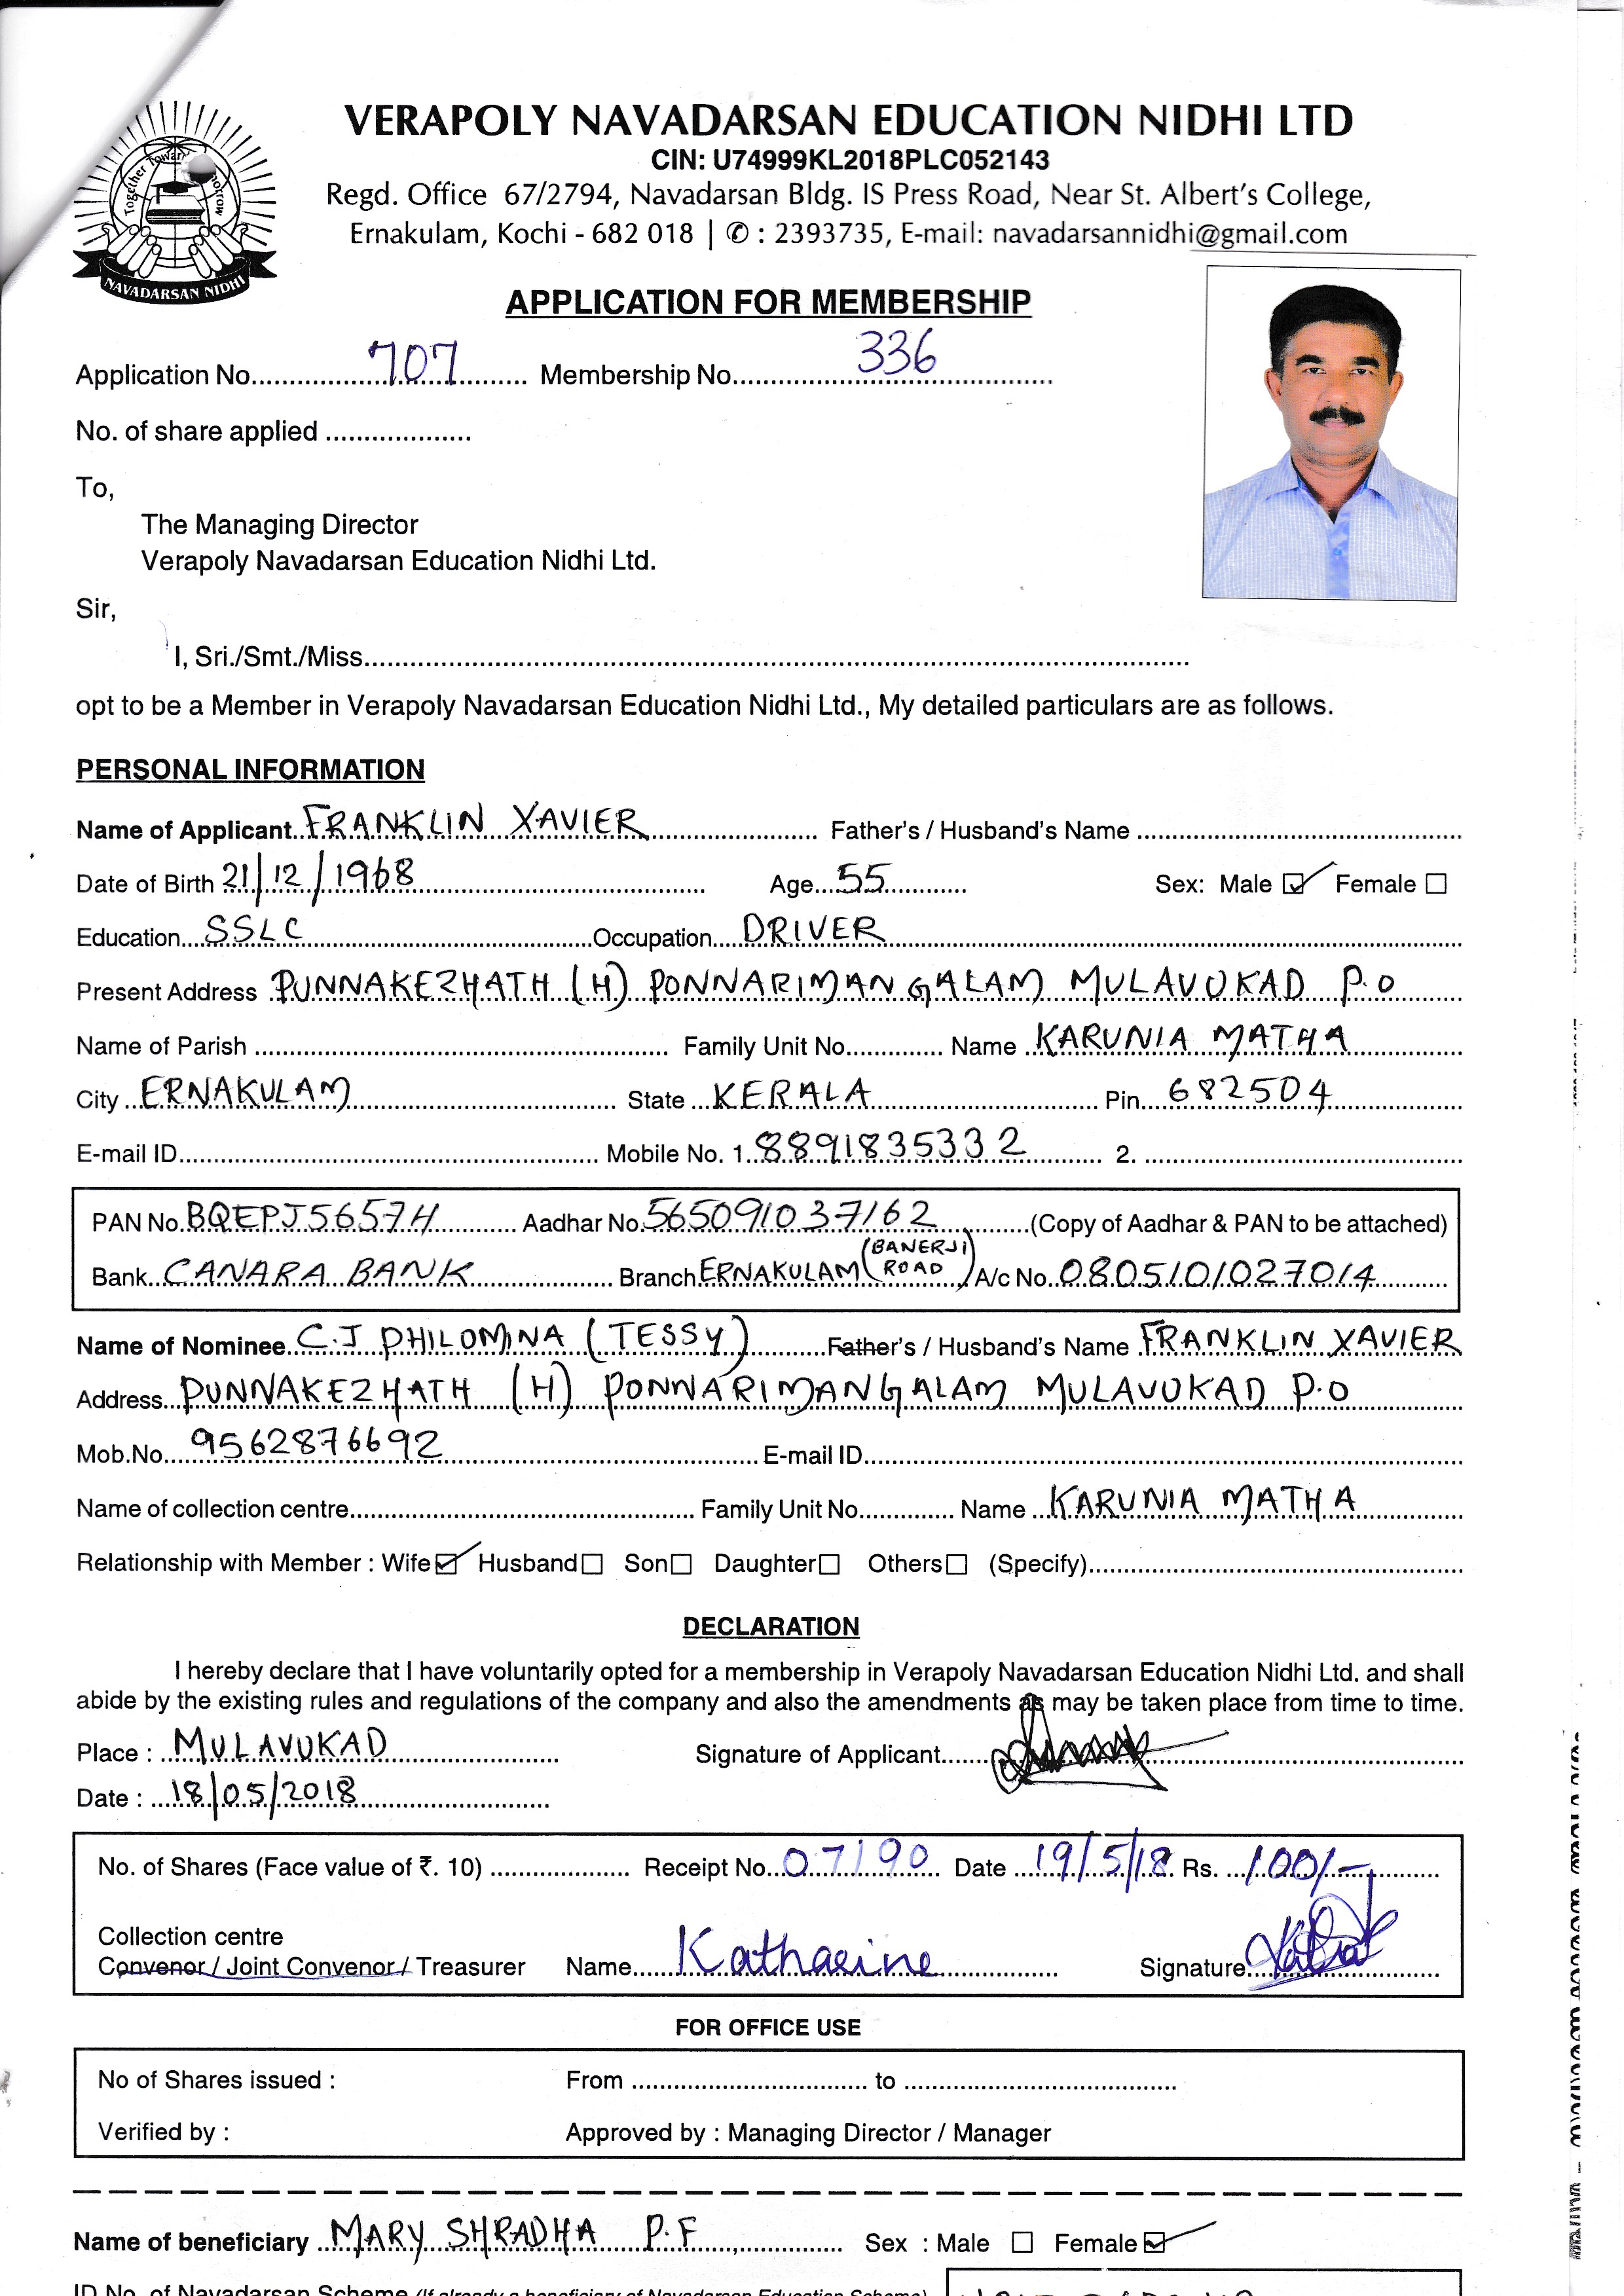 Together Towards
NAVADARSAN NIDHI
VERAPOLY NAVADARSAN EDUCATION NIDHI LTD
CIN: U74999KL2018PLC052143
Regd. Office 67/2794, Navadarsan Bldg. IS Press Road, Near St. Albert's College,
Ernakulam, Kochi - 682 018 | ✆ : 2393735, E-mail: navadarsannidhi@gmail.com
APPLICATION FOR MEMBERSHIP
Application No. 707 Membership No. 336
No. of share applied
To,
The Managing Director
Verapoly Navadarsan Education Nidhi Ltd.
Sir,
I, Sri./Smt./Miss
opt to be a Member in Verapoly Navadarsan Education Nidhi Ltd., My detailed particulars are as follows.
PERSONAL INFORMATION
Name of Applicant FRANKLIN XAVIER Father's / Husband's Name
Date of Birth 21/12/1968 Age 55 Sex: Male ☑ Female ☐
Education SSLC Occupation DRIVER
Present Address PUNNAKEZHATH (H) PONNARIMANGALAM MULAVUKAD P.O
Name of Parish Family Unit No. Name KARUNIA MATHA
City ERNAKULAM State KERALA Pin 682504
E-mail ID Mobile No. 1. 8891835332 2.
PAN No. BQEPJ5657H Aadhar No. 565091037162 (Copy of Aadhar & PAN to be attached)
Bank CANARA BANK Branch ERNAKULAM (BANERJI ROAD) A/c No. 0805101027014
Name of Nominee C.J PHILOMINA (TESSY) Father's / Husband's Name FRANKLIN XAVIER
Address PUNNAKEZHATH (H) PONNARIMANGALAM MULAVUKAD P.O
Mob.No. 9562876692 E-mail ID
Name of collection centre Family Unit No. Name KARUNIA MATHA
Relationship with Member : Wife ☑ Husband ☐ Son ☐ Daughter ☐ Others ☐ (Specify)
DECLARATION
I hereby declare that I have voluntarily opted for a membership in Verapoly Navadarsan Education Nidhi Ltd. and shall
abide by the existing rules and regulations of the company and also the amendments as may be taken place from time to time.
Place : MULAVUKAD Signature of Applicant
Date : 18/05/2018
No. of Shares (Face value of ₹. 10) Receipt No. 07190 Date 19/5/18 Rs. 100/-
Collection centre
Convenor / Joint Convenor / Treasurer Name Katharine Signature
FOR OFFICE USE
No of Shares issued : From to
Verified by : Approved by : Managing Director / Manager
Name of beneficiary MARY SHRADHA P.F Sex : Male ☐ Female ☑
ID No. of Navadarsan Scheme (If already a beneficiary of Navadarsan Education Scheme)